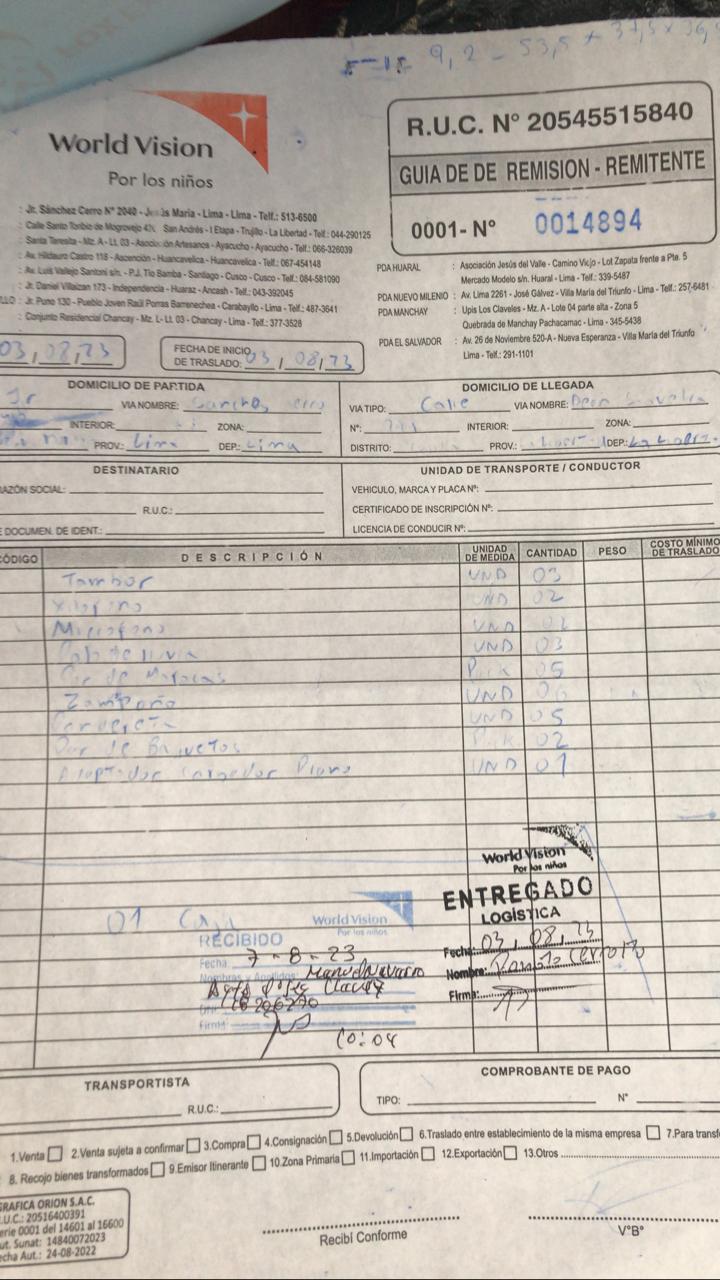 9,2 - 53,5 x 37,5 x 36,
World Vision
Por los niños
R.U.C. N° 20545515840
GUIA DE DE REMISION - REMITENTE
0001- N° 0014894
: Jr. Sánchez Cerro N° 2040 - Jesús Maria - Lima - Lima - Telf.: 513-6500
: Calle Santo Toribio de Mogrovejo San Andrés - I Etapa - Trujillo - La Libertad - Telf.: 044-290125
: Santa Teresita - Mz. A - Lt. 03 - Asociación Artesanos - Ayacucho - Ayacucho - Telf.: 066-326039
: Av. Hildauro Castro 118 - Ascención - Huancavelica - Huancavelica - Telf.: 067-454148
: Av. Luis Vallejo Santoni s/n. - P.J. Tio Bamba - Santiago - Cusco - Cusco - Telf.: 084-581090
: Jr. Daniel Villaizan 173 - Independencia - Huaraz - Ancash - Telf.: 043-392045
LLO : Jr. Puno 130 - Pueblo Joven Raúl Porras Barrenechea - Carabayllo - Lima - Telf.: 487-3641
: Conjunto Residencial Chancay - Mz. L - Lt. 03 - Chancay - Lima - Telf.: 377-3528
PDA HUARAL : Asociación Jesús del Valle - Camino Viejo - Lot Zapata frente a Pte. 5
Mercado Modelo s/n. Huaral - Lima - Telf.: 339-5487
PDA NUEVO MILENIO : Av. Lima 2261 - José Gálvez - Villa Maria del Triunfo - Lima - Telf.: 257-6481
PDA MANCHAY : Upis Los Claveles - Mz. A - Lote 04 parte alta - Zona 5
Quebrada de Manchay Pachacamac - Lima - 345-5438
PDA EL SALVADOR : Av. 26 de Noviembre 520-A - Nueva Esperanza - Villa Maria del Triunfo
Lima - Telf.: 291-1101
03, 08, 23
FECHA DE INICIO
DE TRASLADO: 03, 08, 23
DOMICILIO DE PARTIDA
Jr VIA NOMBRE: Sanchez Cerro
INTERIOR: ZONA:
PROV.: Lima DEP.: Lima
DOMICILIO DE LLEGADA
VIA TIPO: Calle VIA NOMBRE: Dean
N°: INTERIOR: ZONA:
DISTRITO: PROV.: DEP.: La
DESTINATARIO
RAZÓN SOCIAL:
R.U.C.:
E DOCUMEN. DE IDENT.:
UNIDAD DE TRANSPORTE / CONDUCTOR
VEHICULO, MARCA Y PLACA N°:
CERTIFICADO DE INSCRIPCIÓN N°:
LICENCIA DE CONDUCIR N°:
CÓDIGO DESCRIPCIÓN UNIDAD DE MEDIDA CANTIDAD PESO COSTO MÍNIMO DE TRASLADO
Tambor UND 03
Xilofono UND 02
Microfono UND
Palo de lluvia UND 03
Par de Maracas 05
Zampoña UND 06
Pandereta UND 05
Par de Baquetas 02
Adaptador cargador Piano UND 01
01 Caja
World Vision
Por los niños
RECIBIDO
Fecha 7-8-23
Nombres y Apellidos: Manuel Navarro
DNI
Firma
10:04
World Vision
Por los niños
ENTREGADO
LOGÍSTICA
Fecha: 03, 08, 23
Nombre:
Firma:
TRANSPORTISTA
R.U.C.:
COMPROBANTE DE PAGO
TIPO: N°
1.Venta 2.Venta sujeta a confirmar 3.Compra 4.Consignación 5.Devolución 6.Traslado entre establecimiento de la misma empresa 7.Para transf
8. Recojo bienes transformados 9.Emisor Itinerante 10.Zona Primaria 11.Importación 12.Exportación 13.Otros
GRAFICA ORION S.A.C.
.U.C.: 20516400391
erie 0001 del 14601 al 16600
ut. Sunat: 14840072023
echa Aut.: 24-08-2022
Recibí Conforme
V°B°